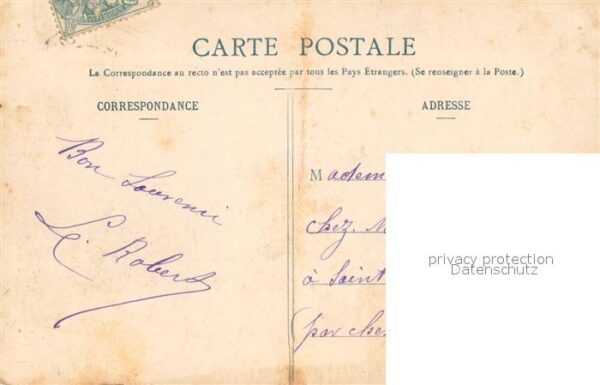 CARTE POSTALE
La Correspondance au recto n'est pas acceptée par tous les Pays Etrangers. (Se renseigner à la Poste.)
CORRESPONDANCE
ADRESSE
Bon Souvenir
L. Robert
Madem
chez M
à Saint
(par che
privacy protection
Datenschutz